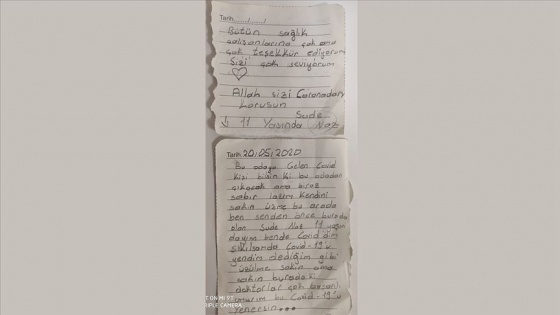 Tarih ....../....../......
Bütün sağlık
çalışanlarına çok ama
çok teşekkür ediyorum
Sizi çok seviyorum
Allah sizi Coronadan
korusun
Sude
11 Yaşında Naz
Tarih 20/05/2020
Bu odaya Gelen Covid
kişi bilsin ki bu odadan
çıkacak ama biraz
sabır lazım kendini
sakın üzme bu arada
ben senden önce burada
olan Sude Naz 11 yaşın
dayım bende Covid dim
sıkılsanda Covid-19'u
yendim dediğim gibi
üzülme sakın ama
sakın buradaki
doktorlar çok
bu Covid-19'u
yenersin...